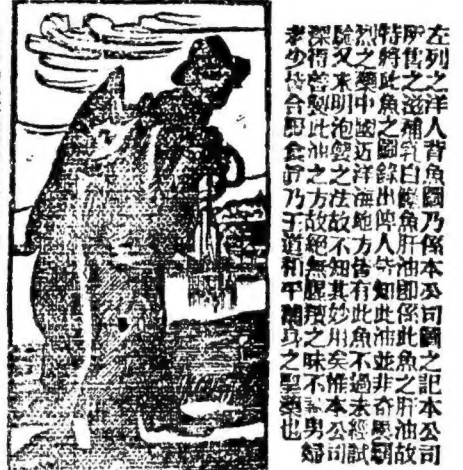 左列之洋人背魚圖乃係本公司圖之記本公司
所售之滋補乳白鱉魚肝油即係此魚之肝油故
特將此魚之圖錄出俾人皆知此油並非奇異霸
烈之藥中國近洋海地方皆有此魚不過未經試
驗又未明泡製之法故不知其妙用矣惟本公司
深得善製此油之方故絕無腥羶之味不論男婦
老少皆合服食真乃于道和平體身之聖藥也